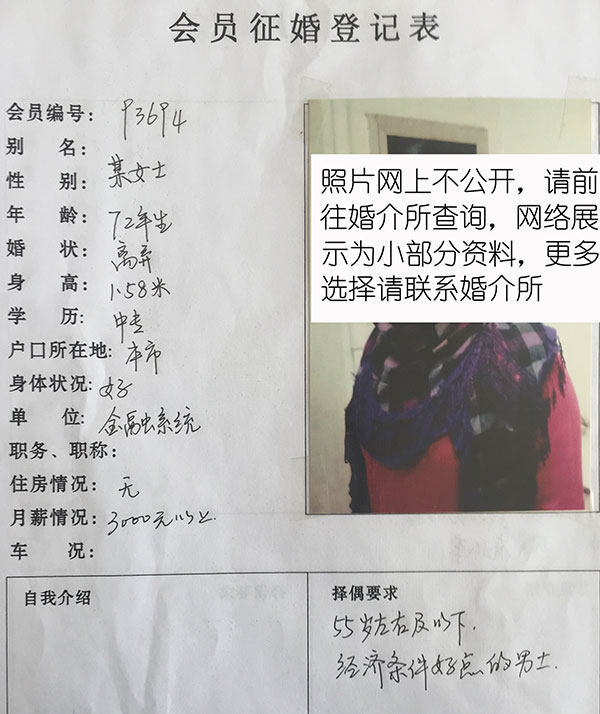 会员征婚登记表
会员编号: 93694
别 名:
性 别: 某女士
年 龄: 72年生
婚 状: 离异
身 高: 1.58米
学 历: 中专
户口所在地: 本市
身体状况: 好
单 位: 金融系统
职务、职称:
住房情况: 无
月薪情况: 3000元以上.
车 况:
照片网上不公开，请前
往婚介所查询，网络展
示为小部分资料，更多
选择请联系婚介所
自我介绍
择偶要求
55岁左右及以下.
经济条件好点的男士.